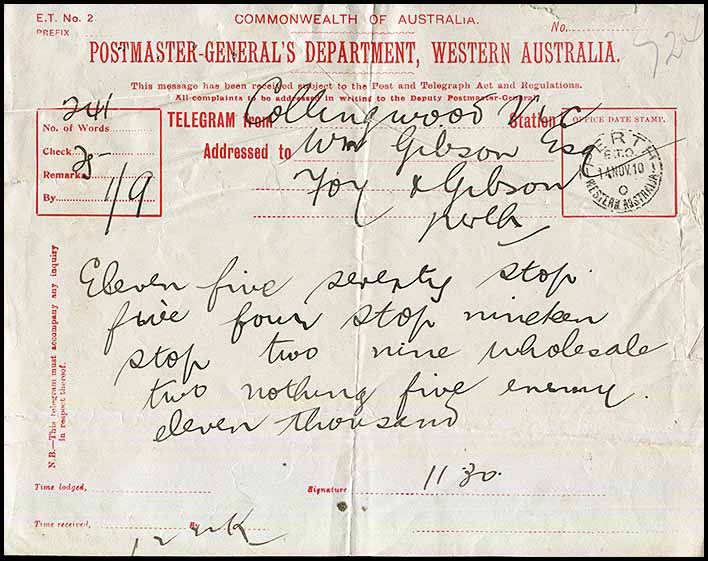 E.T. No. 2.
COMMONWEALTH OF AUSTRALIA.
PREFIX
No.
POSTMASTER-GENERAL'S DEPARTMENT, WESTERN AUSTRALIA.
This message has been received subject to the Post and Telegraph Act and Regulations.
All complaints to be addressed in writing to the Deputy Postmaster-General.
241
No. of Words
Check
Remarks
By
1/9
TELEGRAM from Collingwood Vic Station
Addressed to Wm Gibson Esq
Foy & Gibson
Perth
OFFICE DATE STAMP.
PERTH
E.T.O.
14 NOV. 10
WESTERN AUSTRALIA
Eleven five seventy stop
five four stop nineteen
stop two nine wholesale
two nothing five enemy.
eleven thousand
N.B.—This telegram must accompany any inquiry
in respect thereof.
11 30
Time lodged,
Signature
Time received,
By